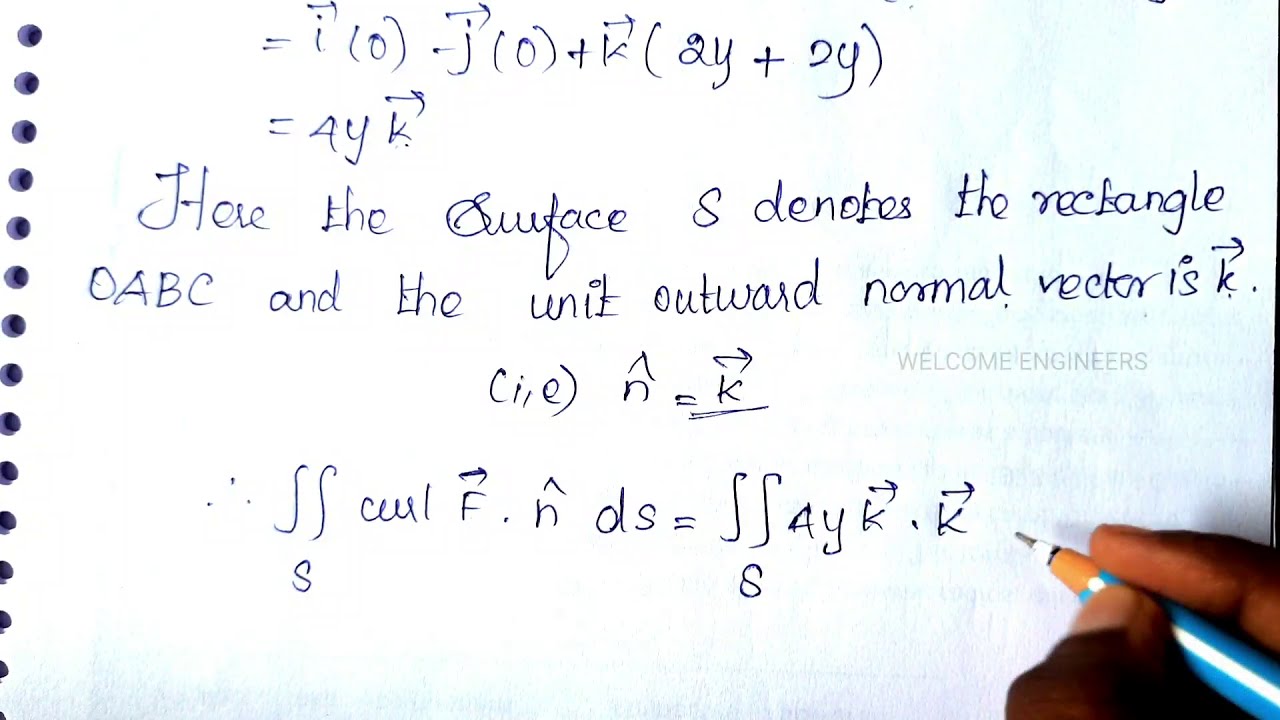 = i⃗ (0) - j⃗ (0) + k⃗ ( 2y + 2y )
= 4y k⃗
Here the Surface S denotes the rectangle
OABC and the unit outward normal vector is k⃗.
WELCOME ENGINEERS
(i,e) n̂ = k⃗
∴ ∬ curl F⃗ . n̂ ds = ∬ 4y k⃗ . k⃗
S S